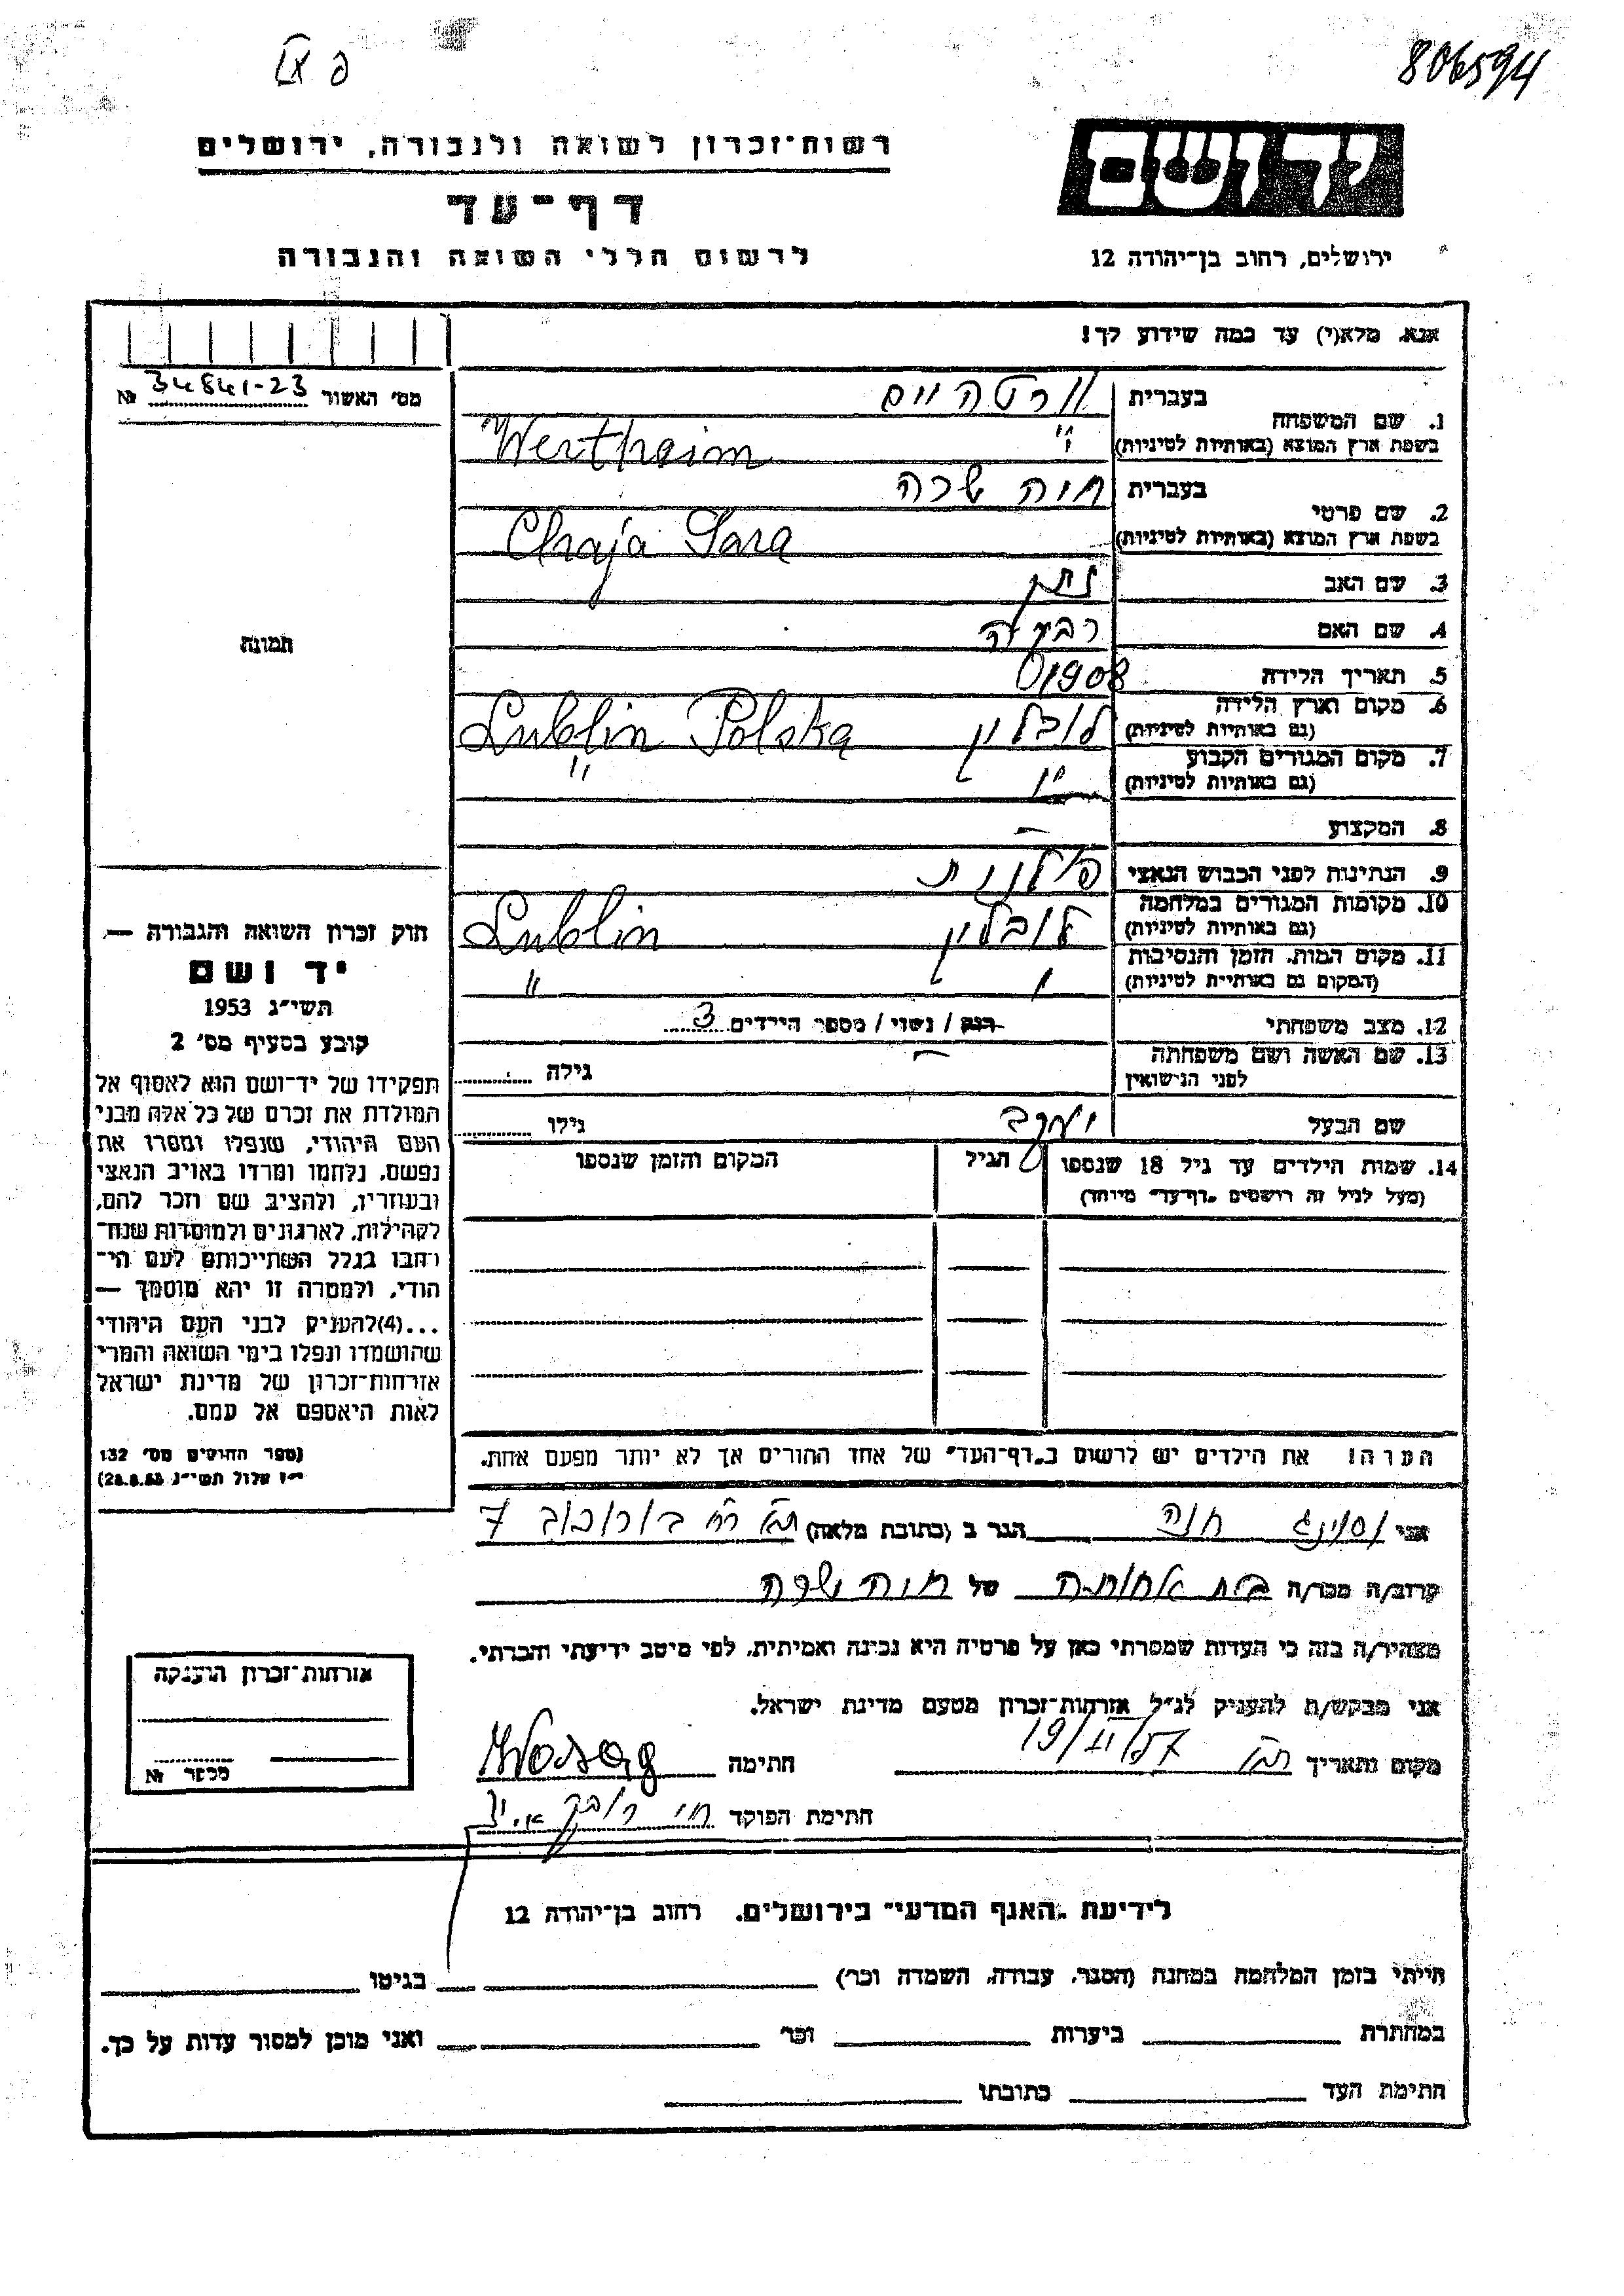 806594
רשות־זכרון לשואה ולגבורה, ירושלים
דף־עד
לרשום חללי השואה והגבורה
יד ושם
ירושלים, רחוב בן־יהודה 12
אנא, מלא(י) עד כמה שידוע לך!
מס׳ האשור 34841-23 №
1. שם המשפחה
בעברית ורטהיים
בשפת ארץ המוצא (באותיות לטיניות) Wertheim
2. שם פרטי
בעברית חיה שרה
בשפת ארץ המוצא (באותיות לטיניות) Chaja Sara
3. שם האב נתן
4. שם האם רבקה
5. תאריך הלידה 1908
6. מקום וארץ הלידה
(גם באותיות לטיניות) לובלין Lublin Polska
7. מקום המגורים הקבוע
(גם באותיות לטיניות) " "
8. המקצוע —
9. הנתינות לפני הכבוש הנאצי פולנית
10. מקומות המגורים במלחמה
(גם באותיות לטיניות) לובלין Lublin
11. מקום המות, הזמן והנסיבות
(המקום גם באותיות לטיניות) " "
12. מצב משפחתי רווק / נשוי / מספר הילדים 3
13. שם האשה ושם משפחתה
לפני הנישואין — גילה
שם הבעל יעקב גילו
14. שמות הילדים עד גיל 18 שנספו
(מעל לגיל זה רושמים „דף־עד״ מיוחד)
הגיל
המקום והזמן שנספו
הערה! את הילדים יש לרשום ב„דף־העד״ של אחד ההורים אך לא יותר מפעם אחת.
תמונה
חוק זכרון השואה והגבורה —
יד ושם
תשי״ג 1953
קובע בסעיף מס׳ 2
תפקידו של יד־ושם הוא לאסוף אל
המולדת את זכרם של כל אלה מבני
העם היהודי, שנפלו ומסרו את
נפשם, נלחמו ומרדו באויב הנאצי
ובעוזריו, ולהציב שם וזכר להם,
לקהילות, לארגונים ולמוסדות שנח־
רבו בגלל השתייכותם לעם הי־
הודי, ולמטרה זו יהא מוסמך —
...(4)להעניק לבני העם היהודי
שהושמדו ונפלו בימי השואה והמרי
אזרחות־זכרון של מדינת ישראל
לאות היאספם אל עמם.
(ספר החוקים מס׳ 132
י״ז אלול תשי״ג 28.8.53)
אני חנה הגר ב (כתובת מלאה) ת״א רח׳ בורוכוב 7
קרוב/ה מכר/ה בת אחותה של חיה שרה
מצהיר/ה בזה כי העדות שמסרתי כאן על פרטיה היא נכונה ואמיתית, לפי מיטב ידיעתי והכרתי.
אני מבקש/ת להעניק לנ״ל אזרחות־זכרון מטעם מדינת ישראל.
מקום ותאריך ת״א 19/II/57 חתימה
חתימת הפוקד
אזרחות־זכרון הוענקה
מספר №
לידיעת „האגף המדעי״ בירושלים, רחוב בן־יהודה 12
הייתי בזמן המלחמה במחנה (הסגר, עבודה, השמדה וכו׳) בגיטו
במחתרת ביערות וכו׳ ואני מוכן למסור עדות על כך.
חתימת העד כתובתו